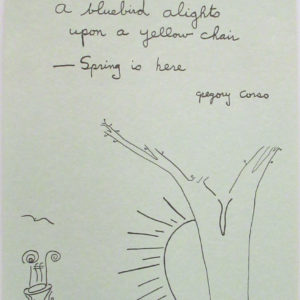 a bluebird alights
upon a yellow chair
— Spring is here
gregory corso